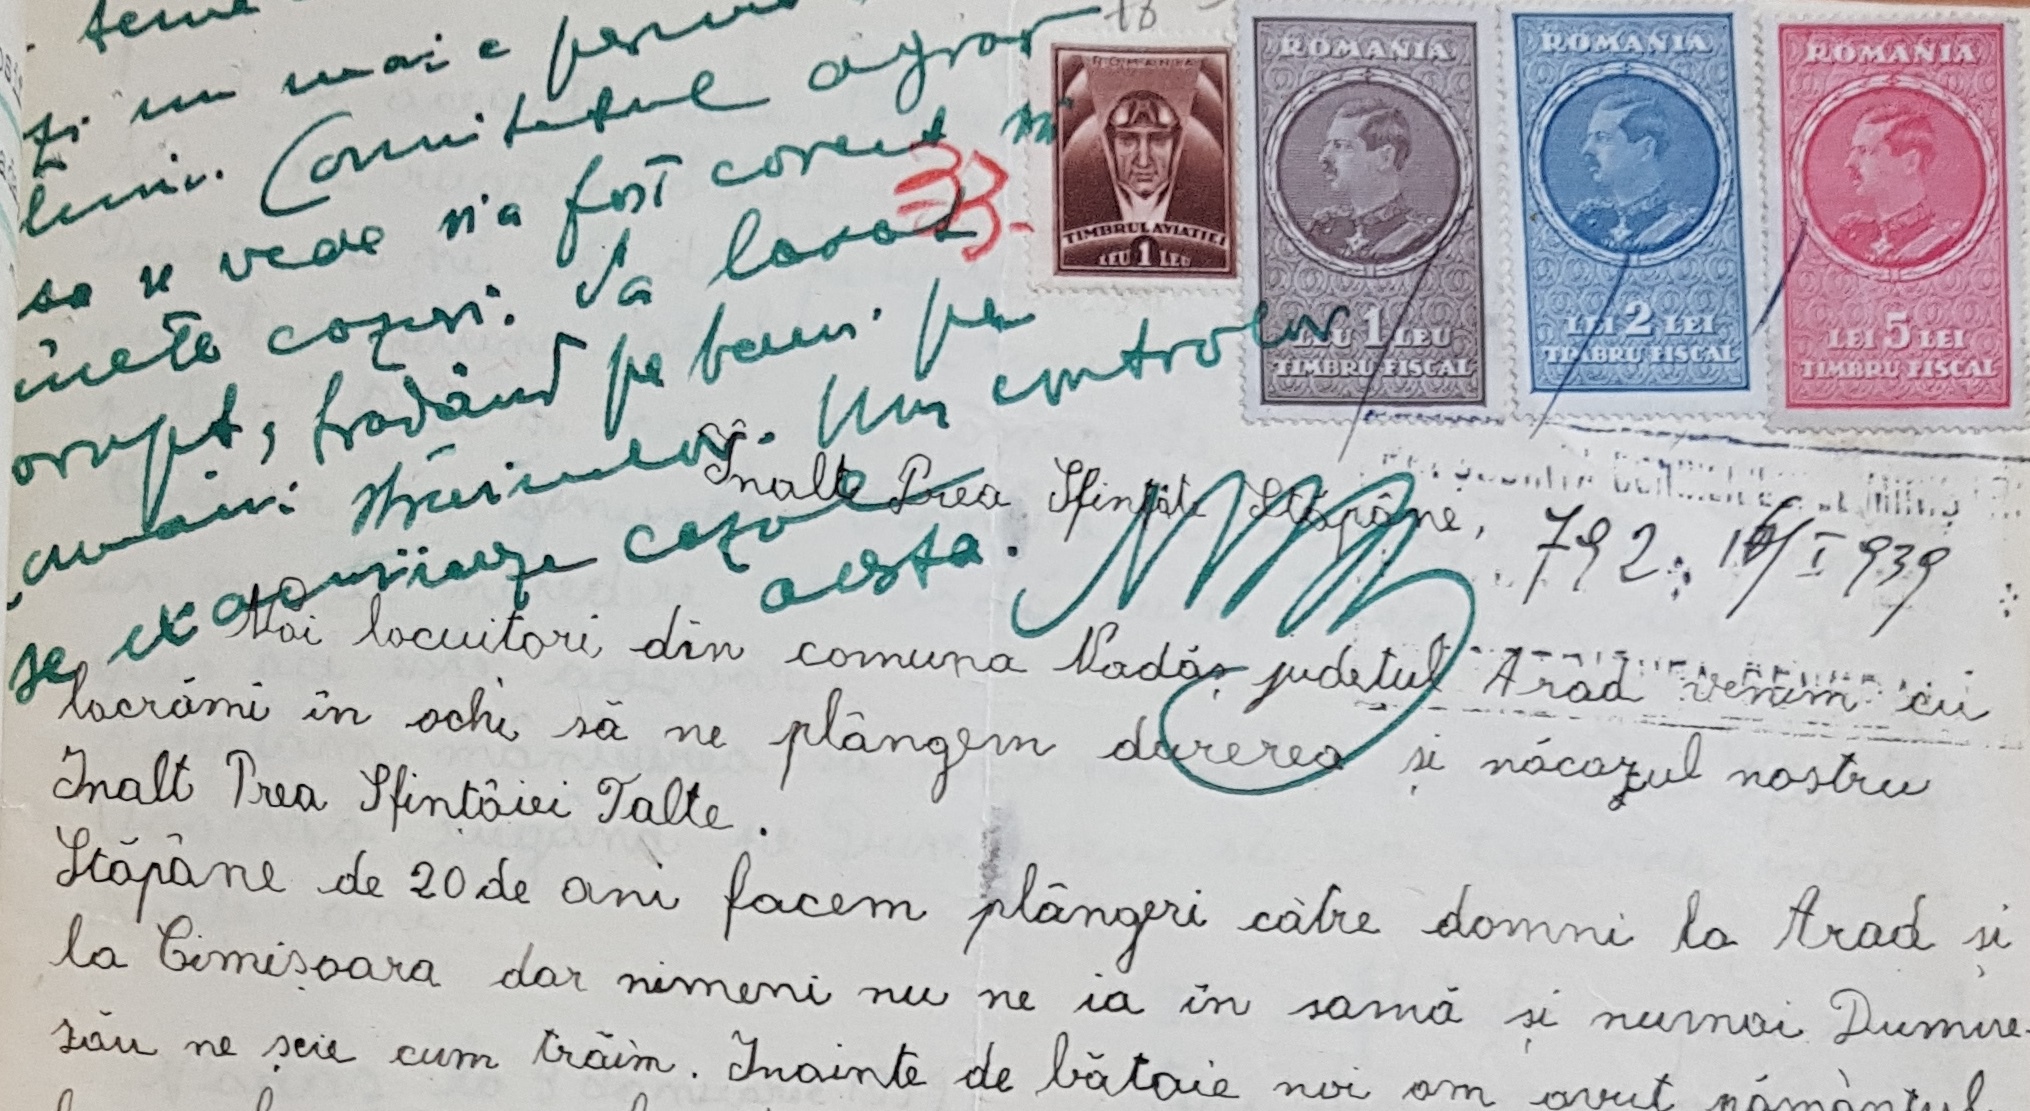 teme
și nu mai e permis
luni. Comitetul agrar
sa se vede n'a fost corect în
unele cazuri. S'a lăsat
corupt, tradând pe bani pe
români străinilor. Un controlor
se examinieze cazul
acesta.
18
33-
ROMANIA
TIMBRUL AVIATIEI
LEU 1 LEU
ROMANIA
LEU 1 LEU
TIMBRU FISCAL
ROMANIA
LEI 2 LEI
TIMBRU FISCAL
ROMANIA
LEI 5 LEI
TIMBRU FISCAL
792. 16/I 939
Inalte Prea Sfințite Stăpâne,
Noi locuitori din comuna Nadăș județul Arad venim cu
lacrămi în ochi să ne plângem durerea și năcazul nostru
Inalt Prea Sfințăiei Talte.
Stăpâne de 20 de ani facem plângeri cătve domni la Arad și
la Timișoara dar nimeni nu ne ia în samă și numai Dumne-
zău ne șcie cum trăim. Inainte de bătaie noi am avut pământul